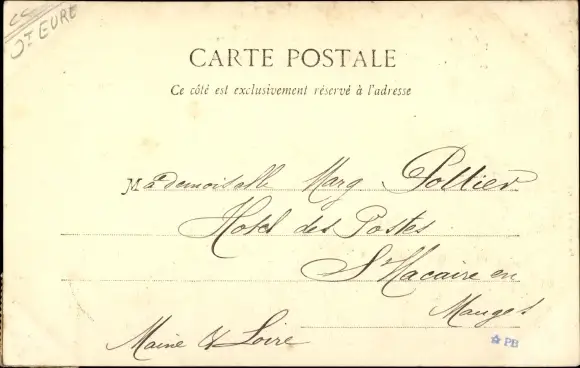 CC
Dt EURE
CARTE POSTALE
Ce côté est exclusivement réservé à l'adresse
Mademoiselle Marg Poltier
Hotel des Postes
St Macaire en
Mauges
Maine & Loire
PB